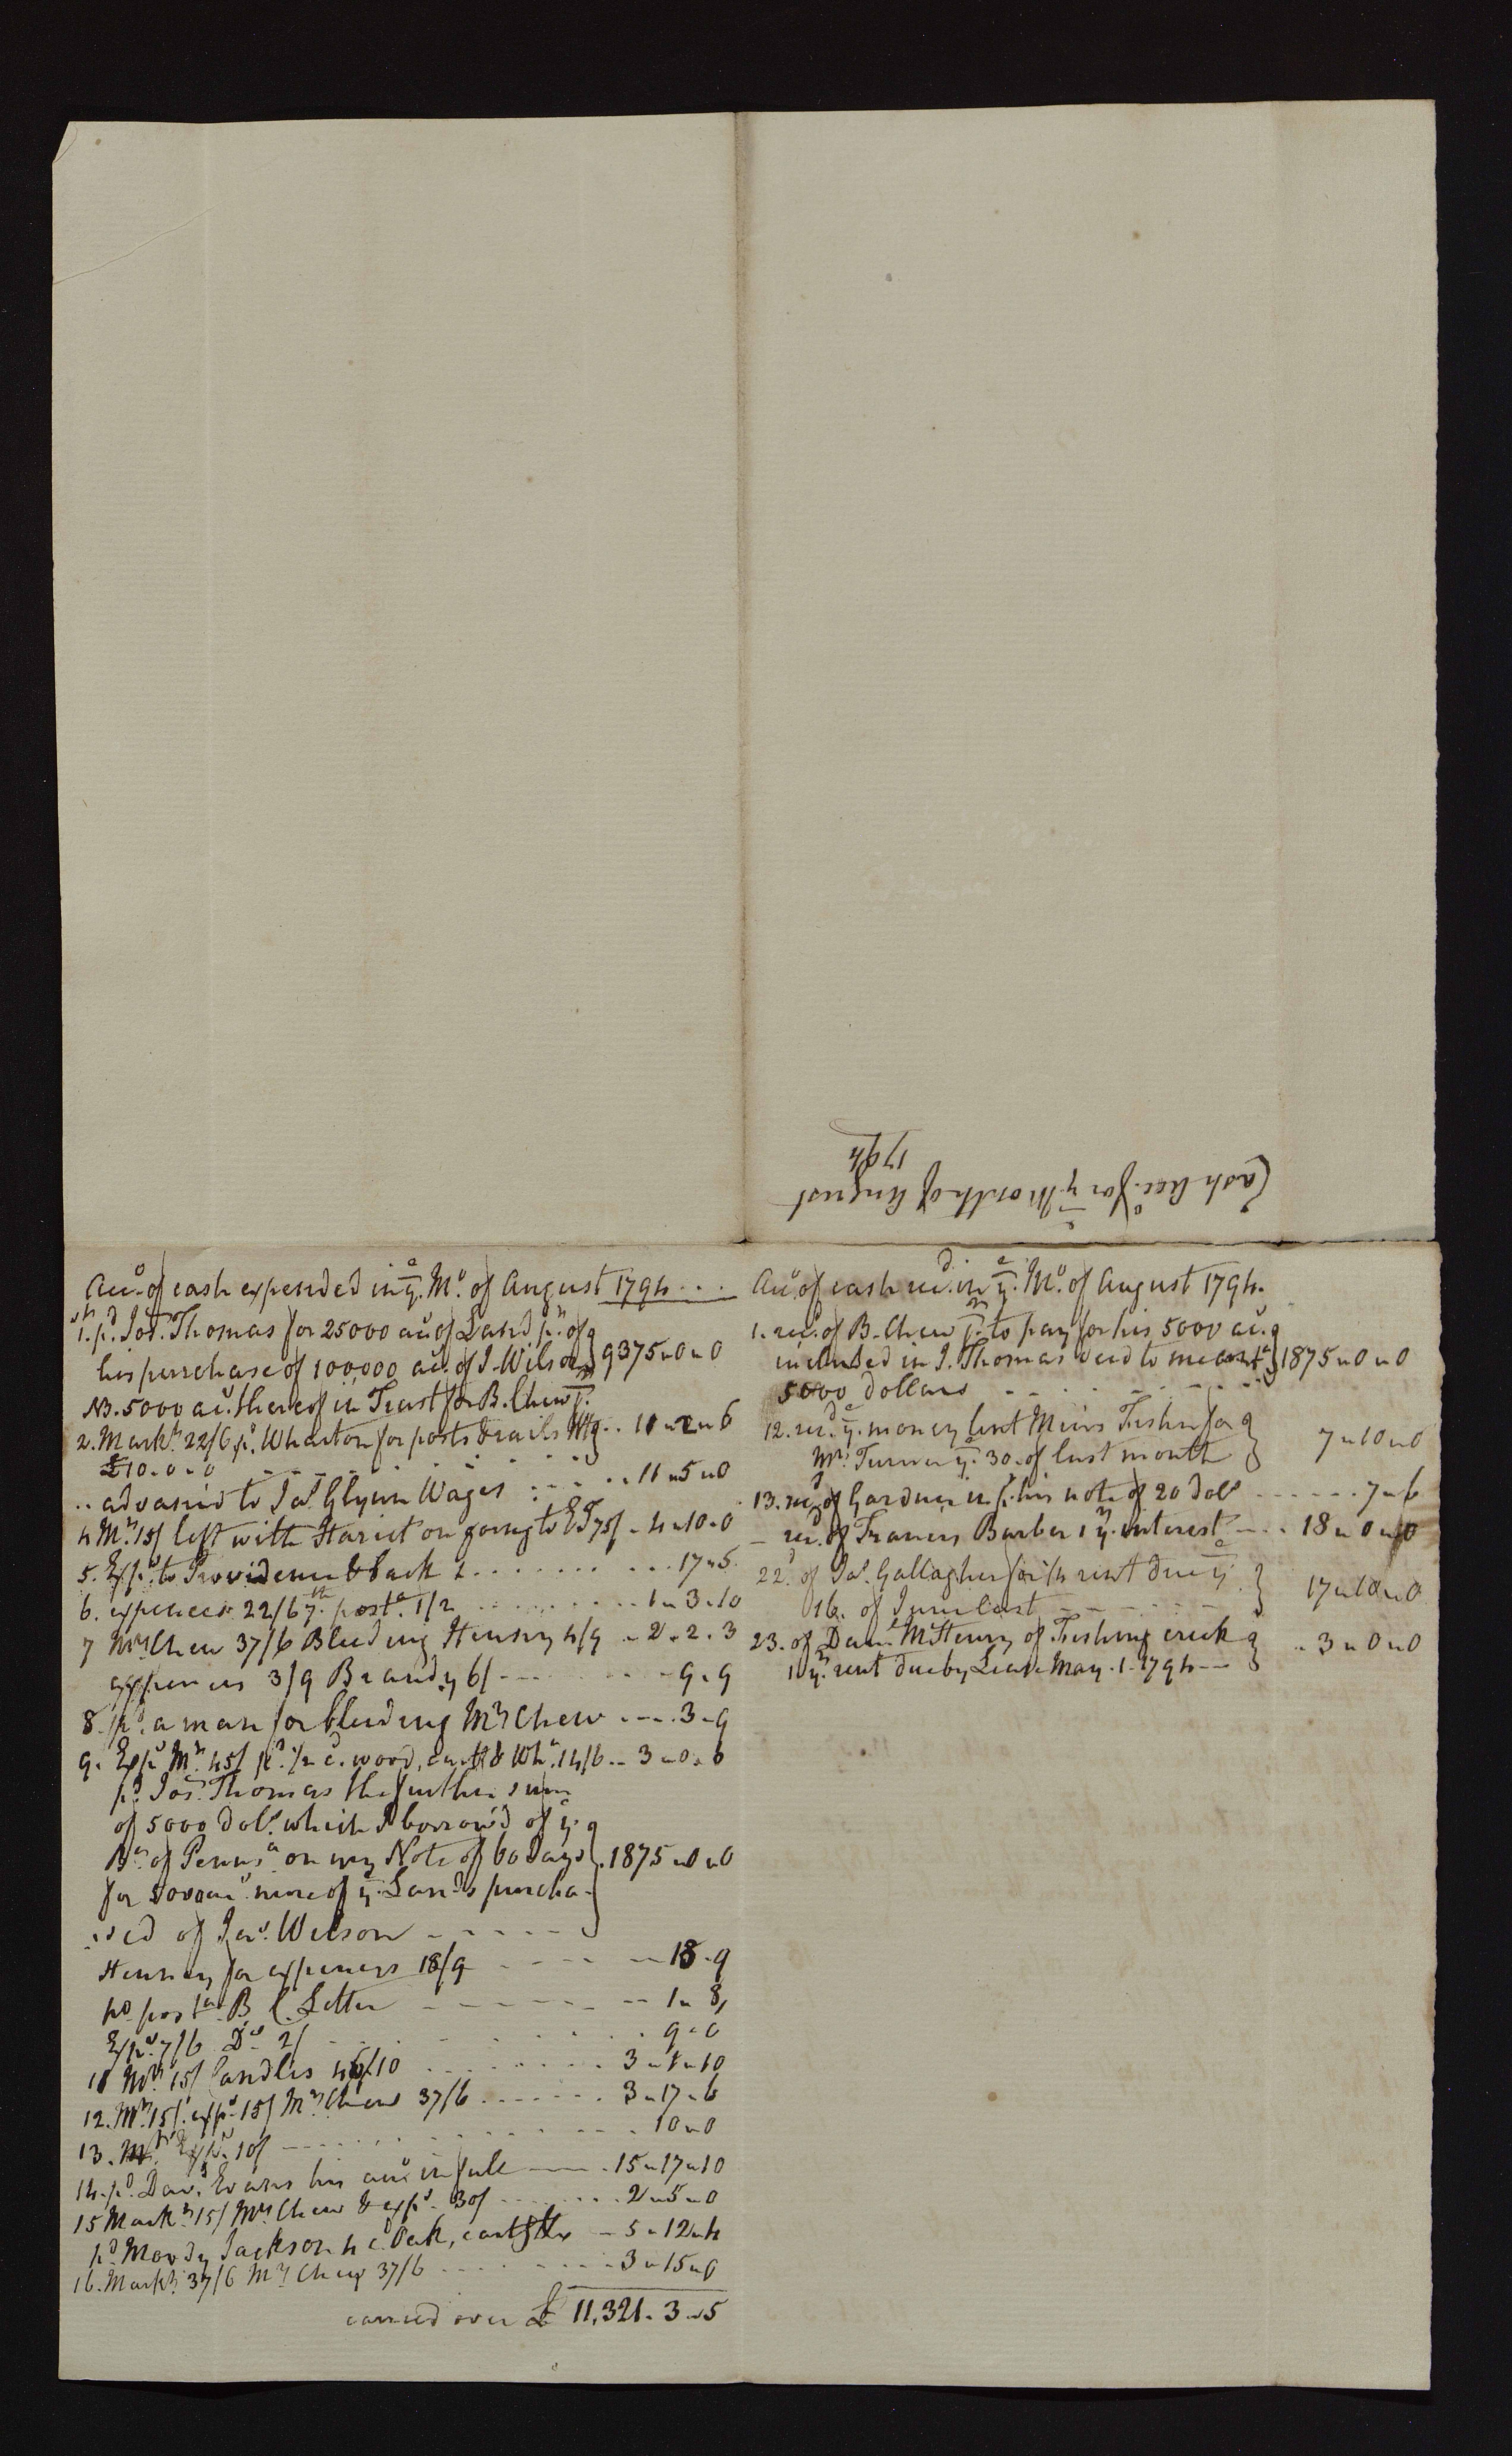 Cash Acc.o for y.e Month of August
1794
Acc.o of cash expended in y.e M.o of August 1794 ...
1. p.d Jos. Thomas for 25000 ac.s of Land p.t of
his purchase of 100,000 ac.s of J. Wilson } 9375 " 0 " 0
NB. 5000 ac.s thereof in Trust for B. Chew j.r
2. Mark.t 22/6 p.d Wharton for posts & rails .. 11 " 2 " 6
£10 . 0 . 0
.. advanc'd to Ja.s Glynn Wages .. 11 " 5 " 0
4 M.t 15/ left with Hariet on going to 75/ - 4 " 10 . 0
5. Exp.s to Providence & back ... 17 " 5
6. expences 22/6 7.th post.e 1/2 ... 1 " 3 . 10
7 M.rs Chew 37/6 Bleeding Henny 4/9 .. 2 . 2 . 3
expences 3/9 Brandy 6/ ---- 9 . 9
8. p.d a man for bleeding M.rs Chew ... 3 . 9
9. Exp.s M.t 45/ p.d 1/2 c. wood, cart.g & Wh.g 14/6 .. 3 " 0 . 6
p.d Jos. Thomas the further sum
of 5000 dol.s which I borrow'd of y.e
B.k of Penns.a on my Note of 60 days } 1875 " 0 " 0
for 5000 ac.s more of y.e Lands purcha-
sed of Ja.s Wilson - - - - -
Henny for expences 18/9 - - - - 18 . 9
p.d post.e B C. Letter - - - - - 1 " 8
Exp.s 7/6 D.o 2/ - - - 9 " 6
11 M.t 15/ Candles 46/10 ... 3 " 1 " 10
12. M.t 15/. exp.s 15/ M.rs Chew 37/6 ... 3 " 17 " 6
13. Exp.s 10/ --- 10 " 0
14. p.d Dav.d Evans his acc.o in full --- 15 " 17 " 10
15 Mark.t 15/ M.rs Chew & exp.s 30/ ... 2 " 5 " 0
p.d Moody Jackson 4 c.d Oak, cart.g &c - 5 " 12 " 4
16. Mark.t 37/6 M.rs Chew 37/6 ... 3 " 15 " 0
carried over £ 11,321 . 3 " 5
Acc.o of cash rec.d in y.e M.o of August 1794.
1. rec.d of B. Chew j.r to pay for his 5000 ac.s
included in J. Thomas deed to me } 1875 " 0 " 0
5000 dollars
12. rec.d y.e money lent Miers Fisher for
M.rs Turner y.e 30. of last month } 7 " 10 " 0
13. rec.d of Gardner in p.t his note of 20 dol.s ------ 7 " 6
- rec.d of Francis Barber 1 y.rs interest --- 18 " 0 " 0
22. of Ja.s Gallagher for 1/2 rent due y.e
16. of June last - - - - } 17 " 10 " 0
23. of Dan.l McHenry of Fishing creek
1 y.rs rent due by Lease May. 1. 1794 -- } .. 3 " 0 " 0